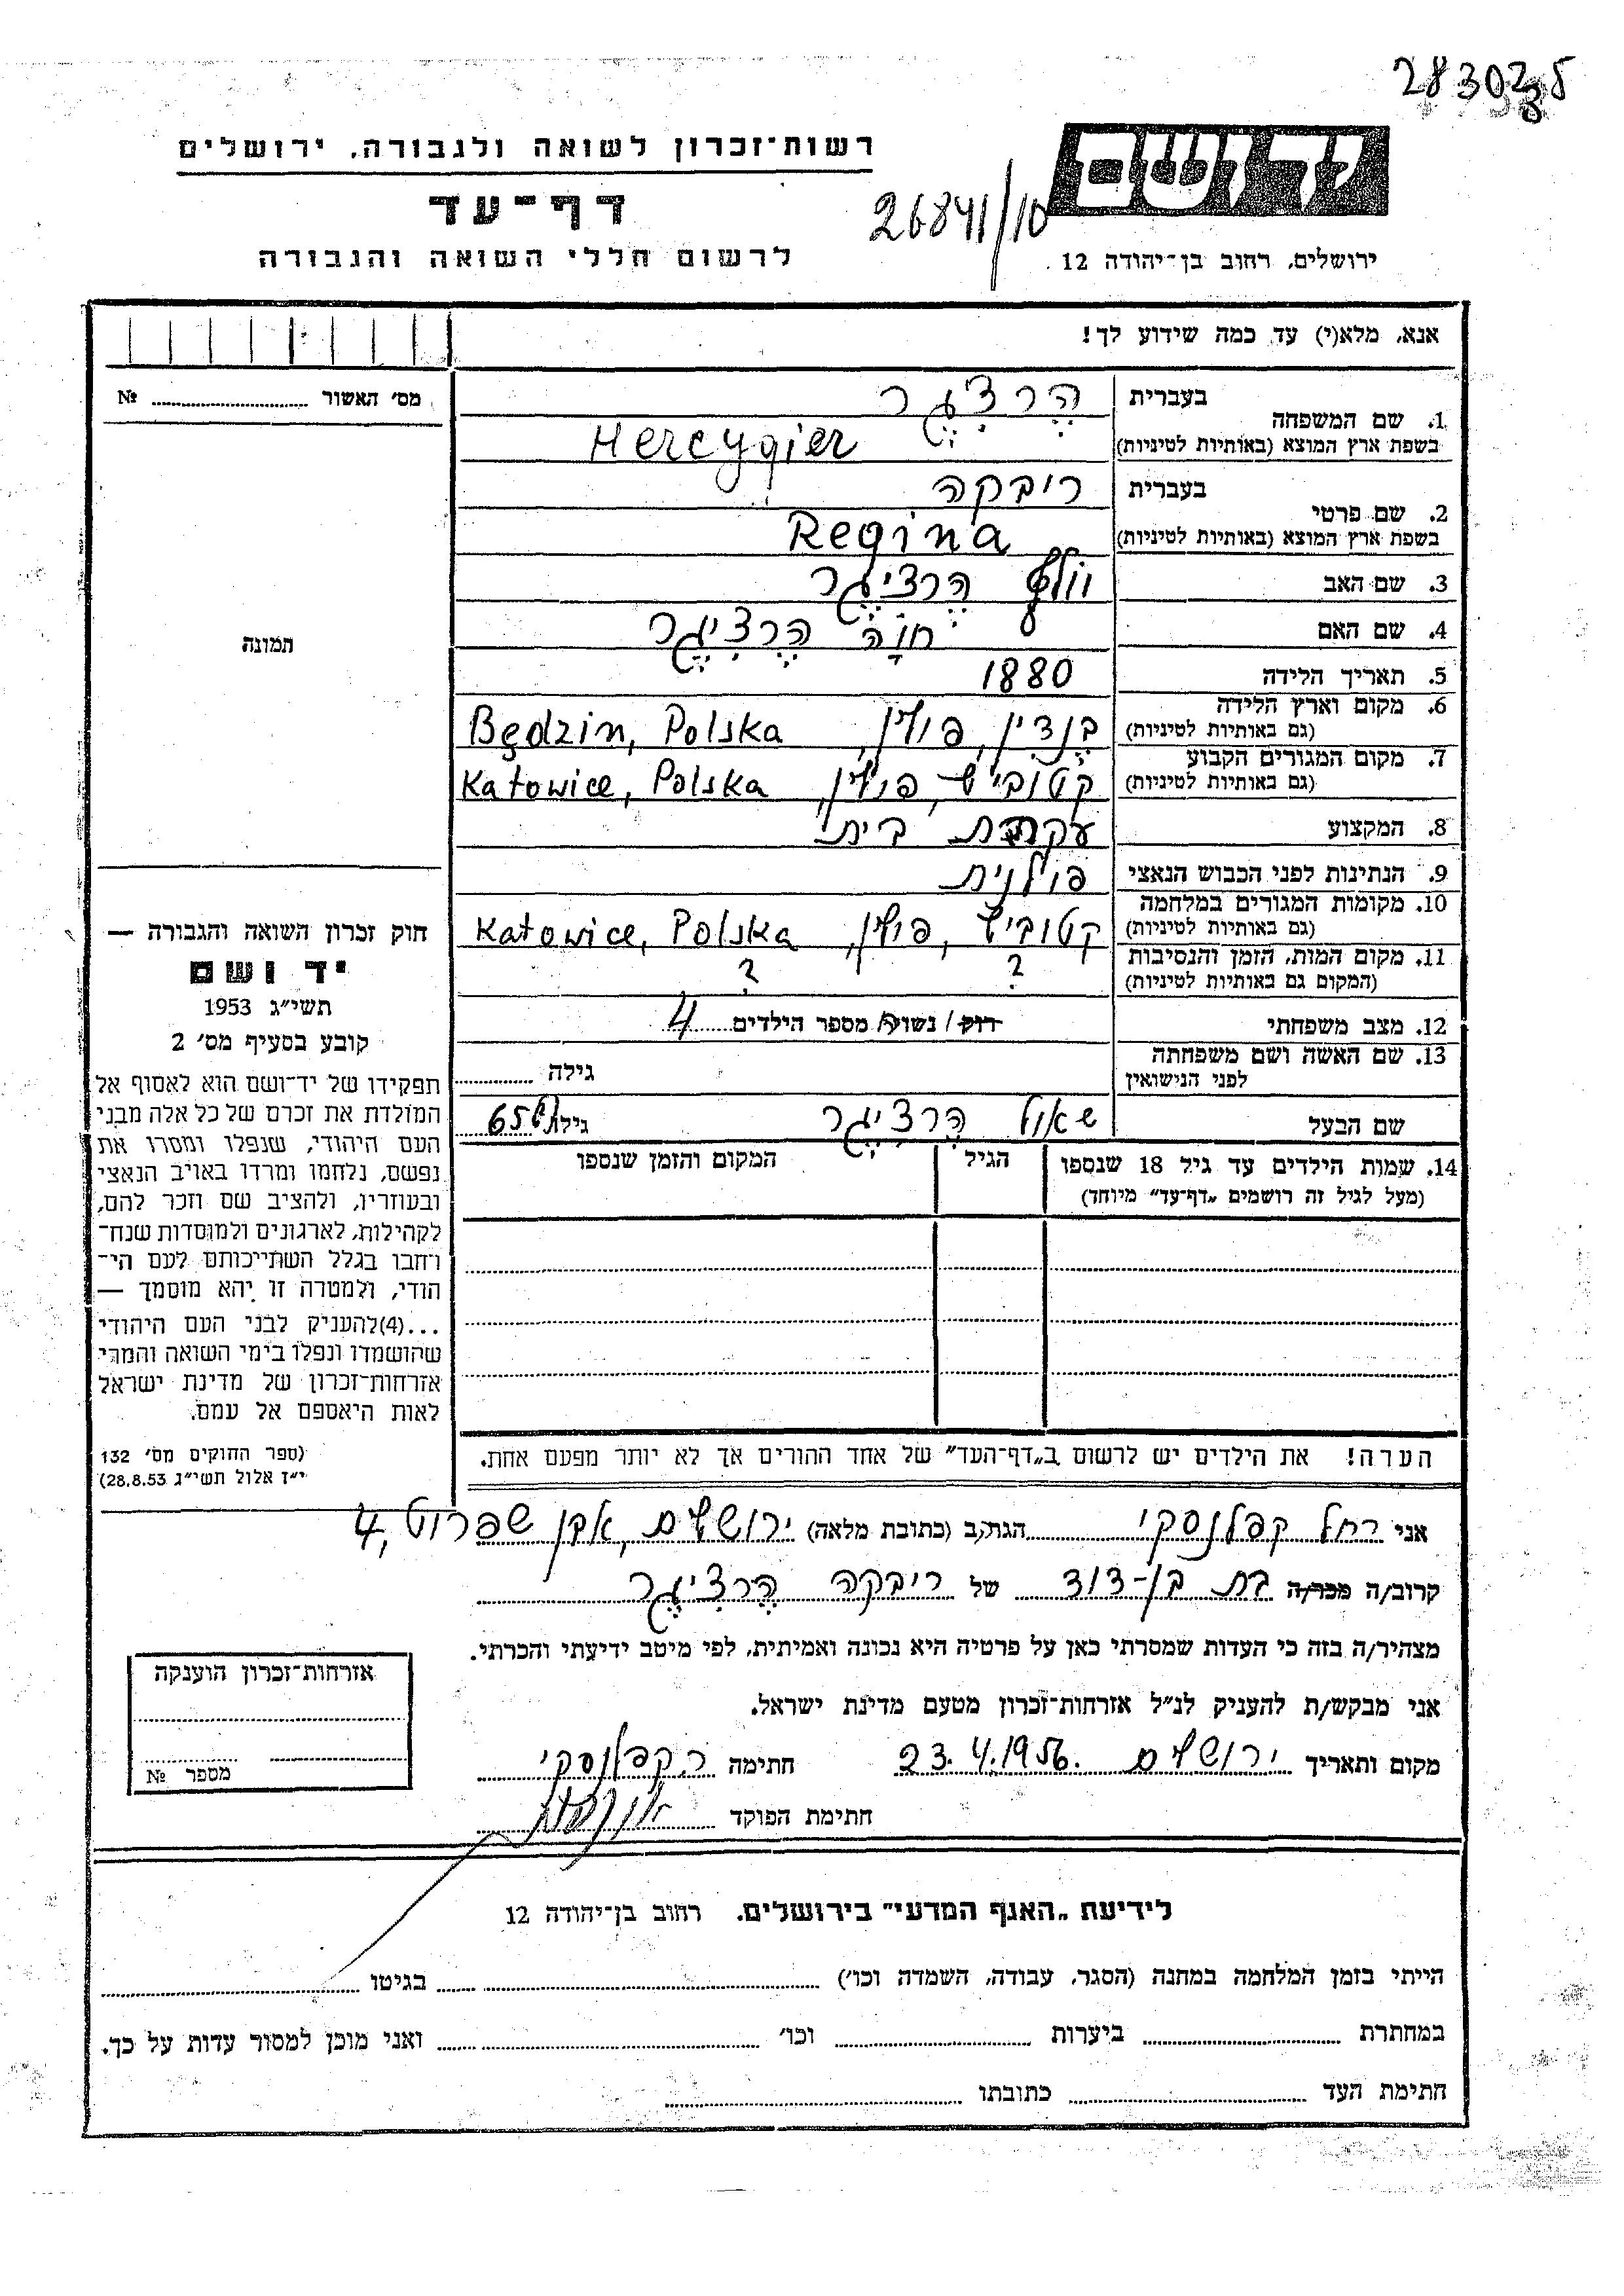 2830235
8
רשות־זכרון לשואה ולגבורה, ירושלים
יד ושם
דף־עד
26841/10
לרשום חללי השואה והגבורה
ירושלים, רחוב בן־יהודה 12
אנא, מלא(י) עד כמה שידוע לך!
מס׳ האשור № 
1. שם המשפחה בעברית הֶרְצִיגֶר
בשפת ארץ המוצא (באותיות לטיניות) Hercygier
2. שם פרטי בעברית ריבקה
בשפת ארץ המוצא (באותיות לטיניות) Regina
3. שם האב וולף הרציגר
4. שם האם חוה הרציגר
5. תאריך הלידה 1880
6. מקום וארץ הלידה (גם באותיות לטיניות) בֶנְדִין, פולין, Będzin, Polska
7. מקום המגורים הקבוע (גם באותיות לטיניות) קטוביץ, פולין, Katowice, Polska
8. המקצוע עקרת בית
9. הנתינות לפני הכבוש הנאצי פולנית
10. מקומות המגורים במלחמה (גם באותיות לטיניות) קטוביץ, פולין, Katowice, Polska
11. מקום המות, הזמן והנסיבות (המקום גם באותיות לטיניות) ? ?
12. מצב משפחתי רוק / נשוי/אה מספר הילדים 4
13. שם האשה ושם משפחתה לפני הנישואין גילה
שם הבעל שאול הרציגר גילו 65
14. שמות הילדים עד גיל 18 שנספו הגיל המקום והזמן שנספו
(מעל לגיל זה רושמים „דף־עד״ מיוחד)
הערה! את הילדים יש לרשום ב„דף־העד״ של אחד ההורים אך לא יותר מפעם אחת.
תמונה
חוק זכרון השואה והגבורה —
יד ושם
תשי״ג 1953
קובע בסעיף מס׳ 2
תפקידו של יד־ושם הוא לאסוף אל
המולדת את זכרם של כל אלה מבני
העם היהודי, שנפלו ומסרו את
נפשם, נלחמו ומרדו באויב הנאצי
ובעוזריו, ולהציב שם וזכר להם,
לקהילות, לארגונים ולמוסדות שנח־
רחבו בגלל השתייכותם לעם הי־
הודי, ולמטרה זו יהא מוסמך —
...(4)להעניק לבני העם היהודי
שהושמדו ונפלו בימי השואה והמרי
אזרחות־זכרון של מדינת ישראל
לאות היאספם אל עמם.
(ספר החוקים מס׳ 132
י״ז אלול תשי״ג 28.8.53)
אני רחל קפלנסקי הגר/ה ב (כתובת מלאה) ירושלים, אבן שפרוט 4,
קרוב/ה מכר/ה בת בן-דוד של ריבקה הרציגר
מצהיר/ה בזה כי העדות שמסרתי כאן על פרטיה היא נכונה ואמיתית, לפי מיטב ידיעתי והכרתי.
אני מבקש/ת להעניק לנ״ל אזרחות־זכרון מטעם מדינת ישראל.
מקום ותאריך ירושלים 23.4.1956. חתימה ר. קפלנסקי
חתימת הפוקד
אזרחות־זכרון הוענקה
מספר №
לידיעת „האגף המדעי״ בירושלים. רחוב בן־יהודה 12
הייתי בזמן המלחמה במחנה (הסגר, עבודה, השמדה וכו׳) בגיטו
במחתרת ביערות וכו׳ ואני מוכן למסור עדות על כך.
חתימת העד כתובתו